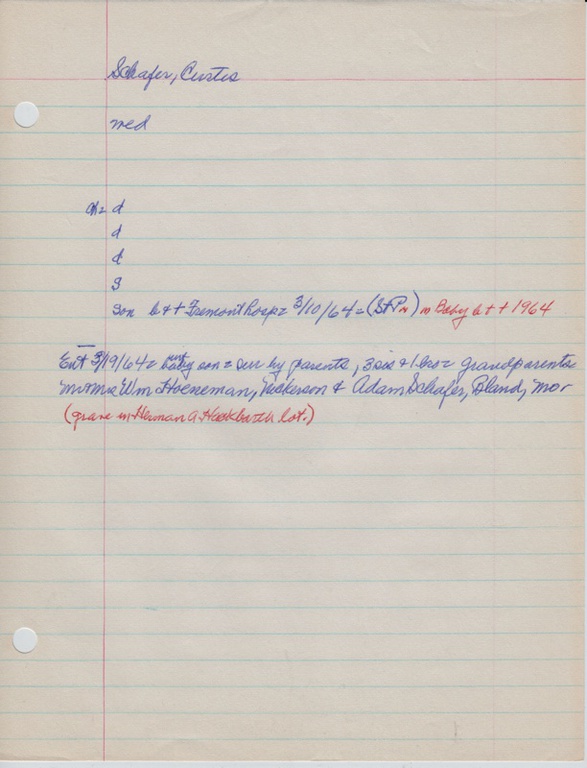 Schafer, Curtis
med
ch = d
d
d
S
Son b + t Fremont hosp = 3/10/64 = (St P ~) ~ Baby b + t 1964
Ent 3/19/64 = baby son = surv by parents, 3 sis & 1 bro = grandparents
Mr & Mrs Wm Hoeneman, Nickerson & Adam Schafer, Bland, Mo
(grave in Herman A. Hackbarth lot.)